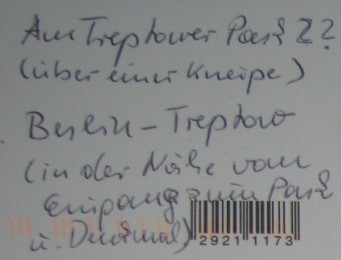 Am Treptower Park 22
(über einer Kneipe)
Berlin-Treptow
(in der Nähe vom
Eingang zum Park
u. Denkmal)
2921 1173